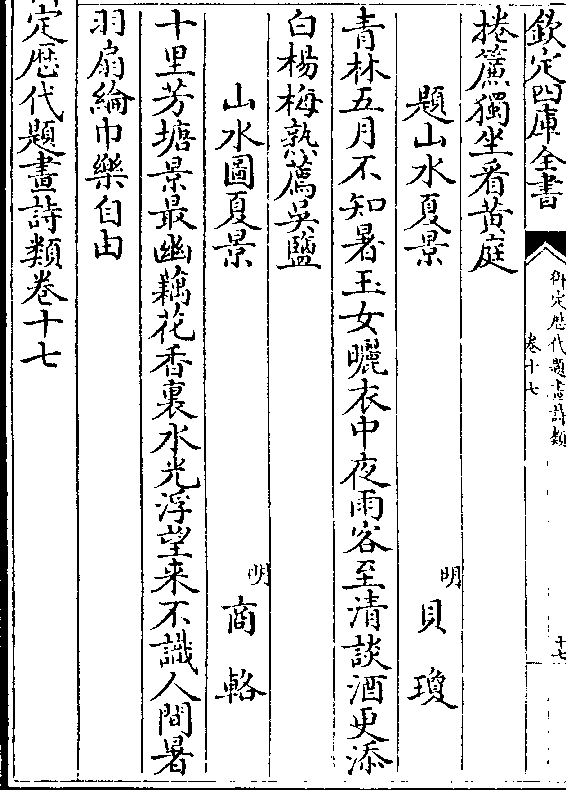 欽定四庫全書
御定歴代題畫詩類
卷十七
十七
捲簾獨坐看黄庭
題山水夏景
明
貝瓊
青林五月不知暑玉女曬衣中夜雨客至清談酒更添
白楊梅熟薦吳鹽
山水圖夏景
明
商輅
十里芳塘景最幽藕花香裏水光浮望来不識人間暑
羽扇綸巾樂自由
定歴代題畫詩類卷十七